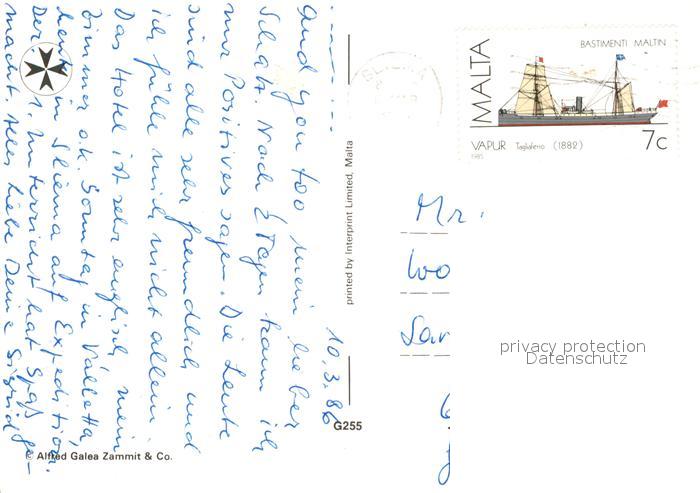 10.3.86
And you too mein lieber
Schatz. Nach 2 Tagen kann ich
nur Positives sagen. Die Leute
sind alle sehr freundlich und
ich fühle mich nicht allein.
Das Hotel ist sehr englisch, mein
Zimmer o.k. Sonntag in Valletta,
heute in Sliema auf Expedition.
Der 1. Unterricht hat Spaß ge-
macht. Alles Liebe Deine Sigrid
© Alfred Galea Zammit & Co.
printed by Interprint Limited, Malta
G255
MALTA
BASTIMENTI MALTIN
VAPUR Tagliaferro (1882)
1985
7c
Mr.
privacy protection
Datenschutz